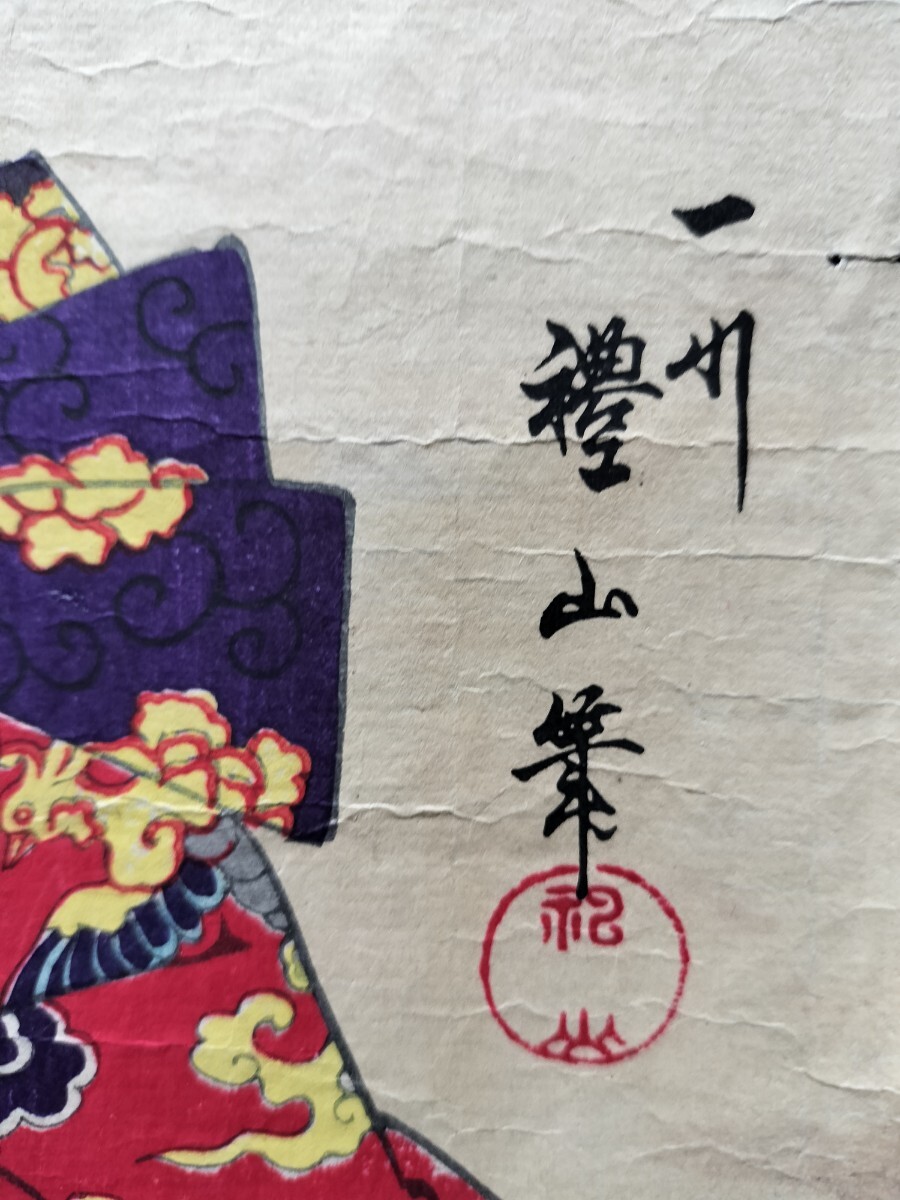 一州
禮山筆
礼山